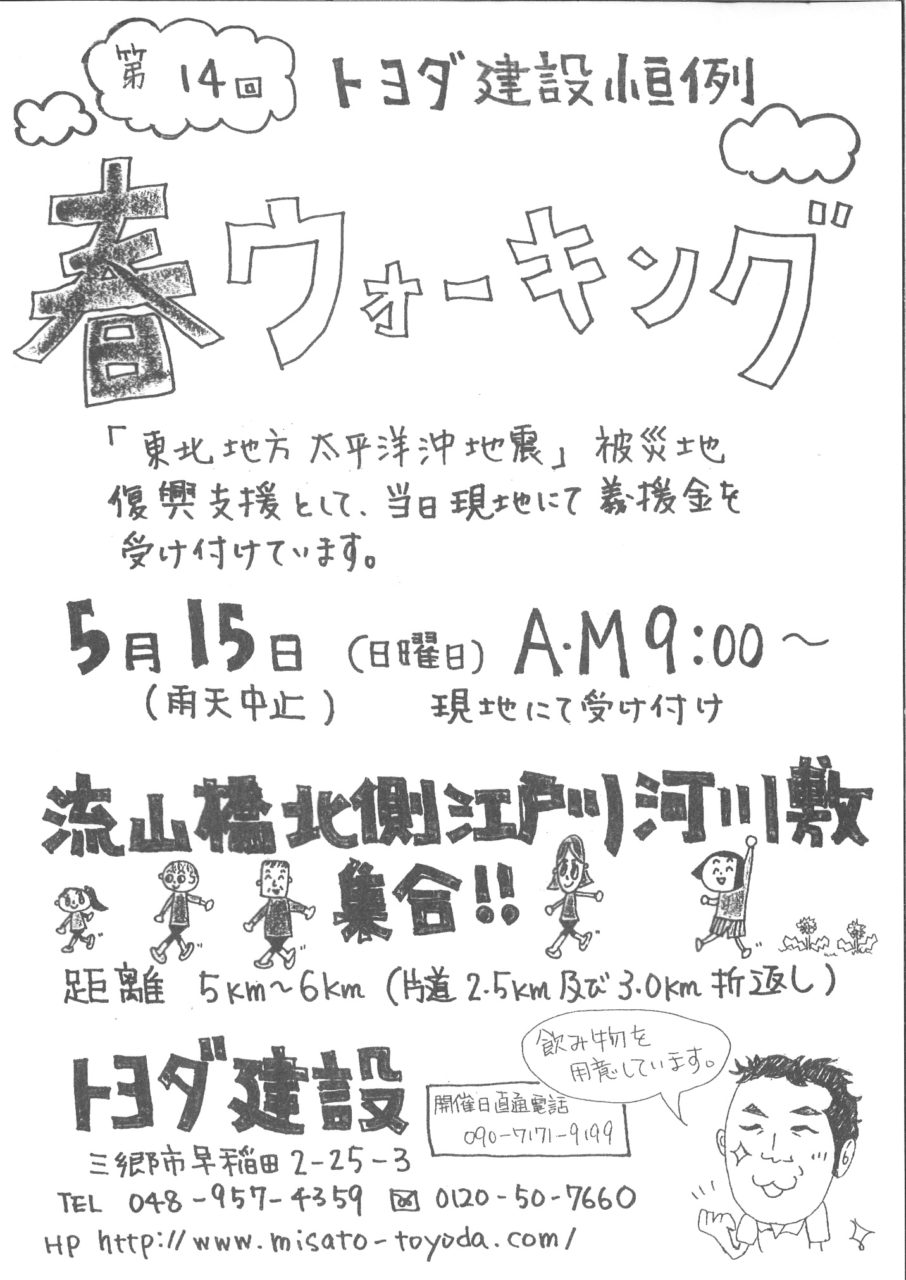 第14回
トヨダ建設恒例
春ウォーキング
「東北地方太平洋沖地震」被災地
復興支援として、当日現地にて義援金を
受け付けています。
5月15日(日曜日) A・M 9:00〜
(雨天中止) 現地にて受け付け
流山橋北側江戸川河川敷
集合!!
距離 5km〜6km (片道2.5km及び3.0km折返し)
飲み物を
用意しています。
トヨダ建設
開催日直通電話
090-7171-9199
三郷市早稲田2-25-3
TEL 048-957-4359 FAX 0120-50-7660
HP http://www.misato-toyoda.com/